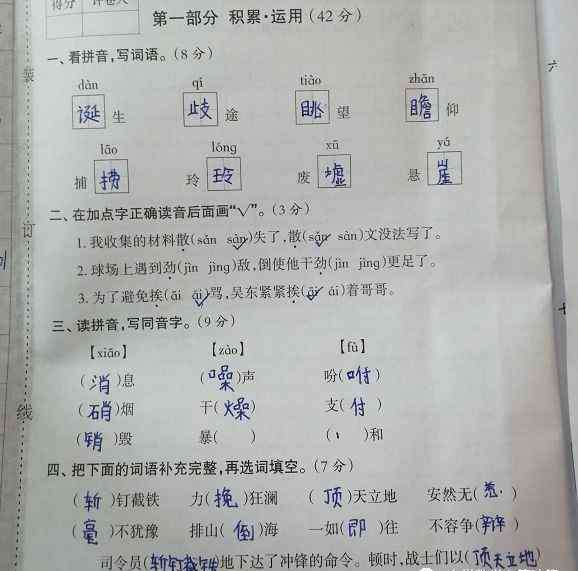 得分 评卷人
第一部分 积累·运用(42分)
一、看拼音,写词语。(8分)
dàn qí tiào zhān
诞生 歧途 眺望 瞻仰
lāo lóng xū yá
捕捞 玲玲 废墟 悬崖
二、在加点字正确读音后面画“√”。(3分)
1.我收集的材料散(sǎn sàn)失了,散(sǎn sàn)文没法写了。
2.球场上遇到劲(jìn jìng)敌,倒使他干劲(jìn jìng)更足了。
3.为了避免挨(āi ái)骂,吴东紧紧挨(āi ái)着哥哥。
三、读拼音,写同音字。(9分)
【xiāo】 【zào】 【fù】
(消)息 (噪)声 吩(咐)
(硝)烟 干(燥) 支(付)
(销)毁 暴( ) ( )和
四、把下面的词语补充完整,再选词填空。(7分)
(斩)钉截铁 力(挽)狂澜 (顶)天立地 安然无(恙)
(毫)不犹豫 排山(倒)海 一如(即)往 不容争(辩)
司令员(斩钉截铁)地下达了冲锋的命令。顿时,战士们以(顶天立地)
装
订
线